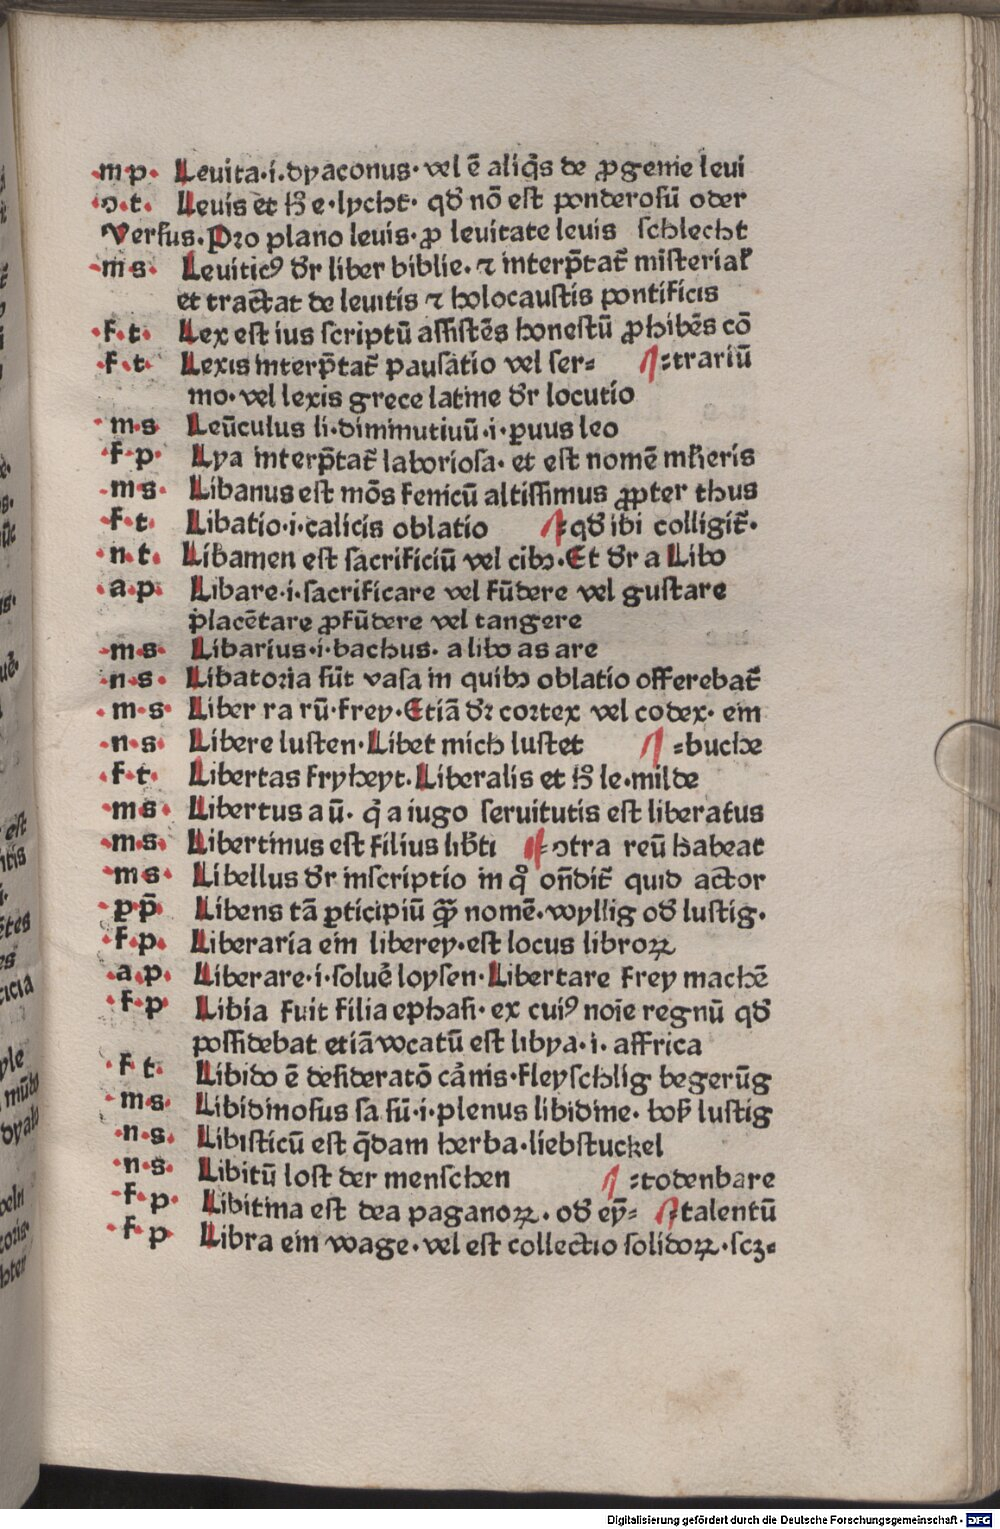 ·m p· Leuita·i·dyaconus·vel ē aliq̄s de ꝓgenie leui
·ɔ·t· Leuis et hͦ e·lycht· qð nō est ponderosū oder
Versus·Pro plano leuis·ꝓ leuitate leuis schlecht
·m s· Leuiticꝰ dr̄ liber biblie·⁊ interp̄tat̄ misterial̄
et tractat de leuitis ⁊ holocaustis pontificis
·f·t· Lex est ius scriptū assistēs honestū ꝓhibēs cō
·f·t· Lexis interp̄tat̄ pausatio vel ser⸗ ⸗trariū
mo·vel lexis grece latine dr̄ locutio
·m·s Leūculus li·diminutiuū·i·ꝑuus leo
·f·p· Lya interp̄tat̄ laboriosa· et est nomē ml̄ieris
·m s· Libanus est mōs fenicū altissimus ꝓpter thus
·f·t· Libatio·i·calicis oblatio ⸗qð ibi colligit̄·
·n·t· Libamen est sacrificiū vel cibꝫ·Et dr̄ a Libo
·a·p· Libare·i·sacrificare vel fūdere vel gustare
placētare ꝓfūdere vel tangere
·m·s· Libarius·i·bachus· a libo as are
·n·s· Libatoria sūt vasa in quibꝫ oblatio offerebat̄
·m·s· Liber ra rū·frey·Etiā dr̄ cortex vel codex· ein
·n·s· Libere lusten·Libet mich lustet ⸗buche
·f·t· Libertas fryheyt·Liberalis et hͦ le·milde
·m s· Libertus a ū· q̇ a iugo seruitutis est liberatus
·m·s· Libertinus est filius lib̄ti ⸗ɔtra reū habeat
·m s· Libellus dr̄ inscriptio in qͦ on̄dit̄ quid actor
·p p̄· Libens tā ꝑticipiū q̄ꝫ nomē·wyllig oð lustig·
·f·p· Liberaria ein liberey·est locus libroꝝ
·a·p· Liberare·i·soluē loysen·Libertare frey machē
·f·p Libia fuit filia ephasi· ex cuiꝰ noīe regnū qð
possidebat etiā vocatū est libya·i·affrica
·f t· Libido ē desideratō carnis·fleyschlig begerūg
·m·s· Libidinosus sa sū·i·plenus libidine· bok lustig
·n·s· Libisticū est q̄dam herba·liebstuckel
·n·s· Libitū lost der menschen ⸗todenbare
·f·p· Libitina est dea paganoꝝ· oð eyn̄⸗ talentū
·f·p Libra ein wage·vel est collectio solidoꝝ·scꝫ⸗
Digitalisierung gefördert durch die Deutsche Forschungsgemeinschaft - DFG